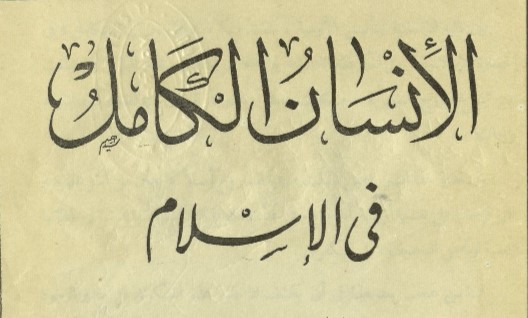 الأنسَانُ الكَامِلُ
في الإِسْلام